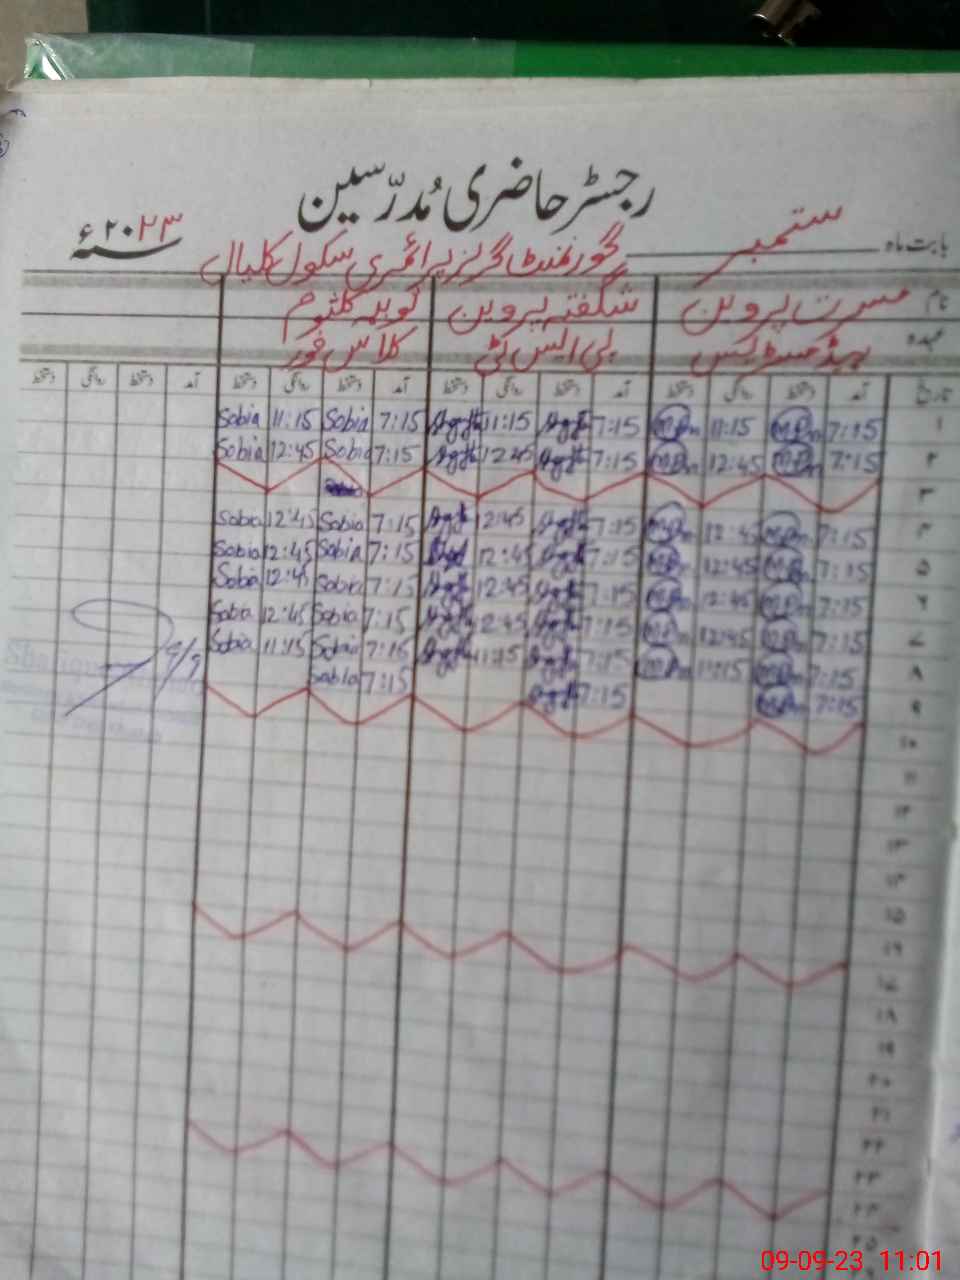 رجسٹر حاضری مُدرّسین
بابت ماہ ستمبر سنہ ۲۰۲۳ء
گورنمنٹ گرلز پرائمری سکول کلیال
نام مسرت پروین شگفتہ پروین ثوبیہ کلثوم
عہدہ ہیڈ مسٹریس پی ایس ٹی کلاس فور
تاریخ آمد دستخط روانگی دستخط آمد دستخط روانگی دستخط آمد دستخط روانگی دستخط آمد دستخط روانگی دستخط
۱ 7:15 11:15 7:15 11:15 7:15 Sobia 11:15 Sobia
۲ 7:15 12:45 7:15 12:45 7:15 Sobia 12:45 Sobia
۳
۴ 7:15 12:45 7:15 12:45 7:15 Sobia 12:45 Sobia
۵ 7:15 12:45 7:15 12:45 7:15 Sobia 12:45 Sobia
۶ 7:15 12:45 7:15 12:45 7:15 Sobia 12:45 Sobia
۷ 7:15 12:45 7:15 12:45 7:15 Sobia 12:45 Sobia
۸ 7:15 11:15 7:15 11:15 7:15 Sobia 11:15 Sobia
۹ 7:15 7:15 7:15 Sobia
9/9
۱۰
۱۱
۱۲
۱۳
۱۴
۱۵
۱۶
۱۷
۱۸
۱۹
۲۰
۲۱
۲۲
۲۳
۲۴
۲۵
09-09-23 11:01